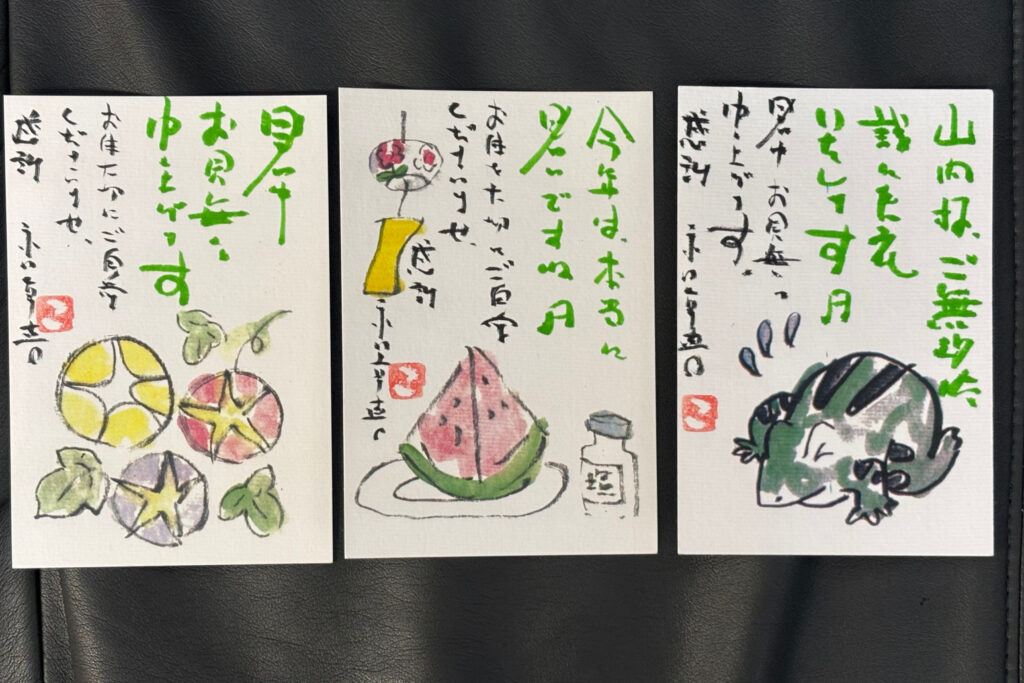 暑中
お見舞い
申し上げます
お体大切にご自愛
くださいませ、
感謝
今年は、本当に
暑いですね
お体を大切にご自愛
くださいませ、
感謝
塩
山内様、ご無沙汰
いたして
暑中お見舞い
申し上げます。
感謝